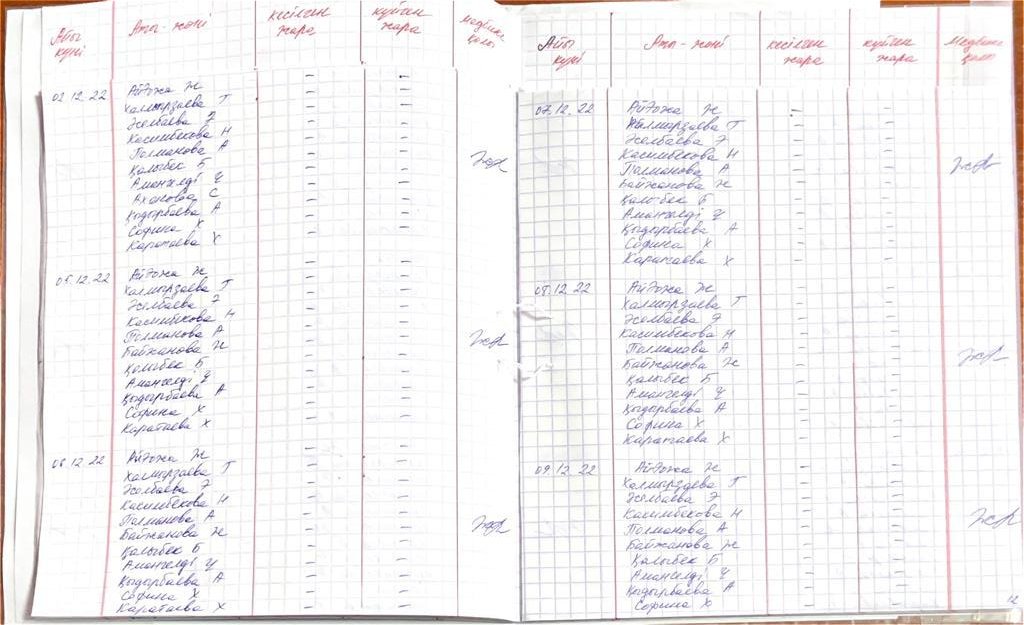 Айы күні Аты - жөні кесілген жара күйген жара медбике қолы
02.12.22 Айдожа Ж - -
Халмырзаева Т - -
Жолбаева Э - -
Касимбекова Н - -
Полманова А - -
Қалыбек Б - -
Амангелді Ұ - -
Аханова С - -
Қыдырбаева А - -
Софина Х - -
Каратаева Х - -
05.12.22 Айдожа Ж - -
Халмырзаева Т - -
Жолбаева Э - -
Касимбекова Н - -
Полманова А - -
Байжанова Ж - -
Қалыбек Б - -
Амангелді Ұ - -
Қыдырбаева А - -
Софина Х - -
Каратаева Х - -
06.12.22 Айдожа Ж - -
Халмырзаева Т - -
Жолбаева Э - -
Касимбекова Н - -
Полманова А - -
Байжанова Ж - -
Қалыбек Б - -
Амангелді Ұ - -
Қыдырбаева А - -
Софина Х - -
Каратаева Х - -
Айы күні Аты - жөні кесілген жара күйген жара Медбике қолы
07.12.22 Айдожа Ж - -
Халмырзаева Т - -
Жолбаева Э - -
Касимбекова Н - -
Полманова А - -
Байжанова Ж - -
Қалыбек Б - -
Амангелді Ұ - -
Қыдырбаева А - -
Софина Х - -
Каратаева Х - -
08.12.22 Айдожа Ж - -
Халмырзаева Т - -
Жолбаева Э - -
Касимбекова Н - -
Полманова А - -
Байжанова Ж - -
Қалыбек Б - -
Амангелді Ұ - -
Қыдырбаева А - -
Софина Х - -
Каратаева Х - -
09.12.22 Айдожа Ж - -
Халмырзаева Т - -
Жолбаева Э - -
Касимбекова Н - -
Полманова А - -
Байжанова Ж - -
Қалыбек Б - -
Амангелді Ұ - -
Қыдырбаева А - -
Софина Х - -
12